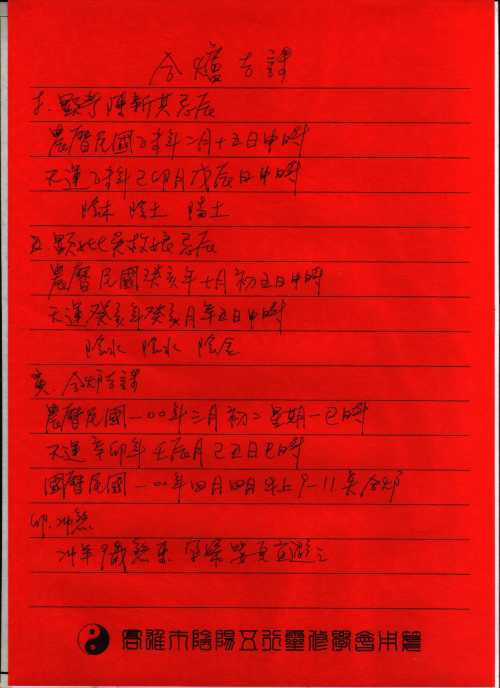 合爐吉課
子.顯考陳新其忌辰
農曆民國乙未年二月十五日申時
天運乙未年己卯月戊辰日申時
陰木 陰土 陽土
丑 顯妣吳 娘忌辰
農曆民國癸亥年十月初五日申時
天運癸亥年癸亥月辛丑日申時
陰水 陰水 陰金
寅 合炉吉課
農曆民國一00年三月初二星期一巳時
天運辛卯年壬辰月己丑日巳時
國曆民國一00年四月四日早上9-11点合炉
卯.沖煞
沖羊9歲煞東 宜避之
高雄市陰陽五行靈修學會用箋